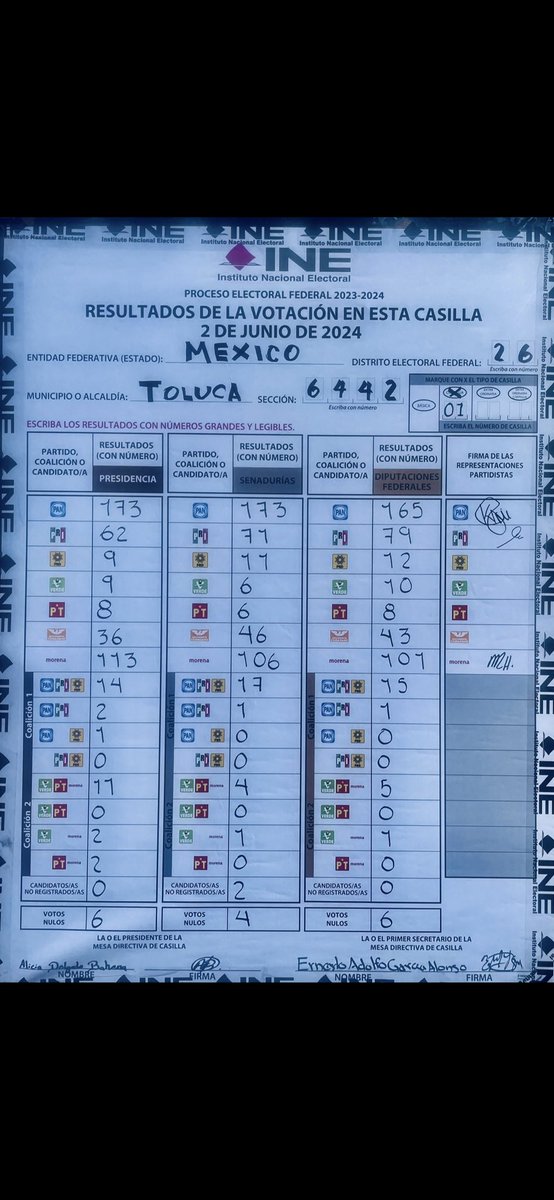 INE
Instituto Nacional Electoral
PROCESO ELECTORAL FEDERAL 2023-2024
RESULTADOS DE LA VOTACIÓN EN ESTA CASILLA
2 DE JUNIO DE 2024
ENTIDAD FEDERATIVA (ESTADO): MEXICO DISTRITO ELECTORAL FEDERAL: 2 6
Escriba con número
MUNICIPIO O ALCALDÍA: TOLUCA SECCIÓN: 6 4 4 2
Escriba con número
MARQUE CON X EL TIPO DE CASILLA
BÁSICA X
01
ESCRIBA EL NÚMERO DE CASILLA
ESCRIBA LOS RESULTADOS CON NÚMEROS GRANDES Y LEGIBLES.
PARTIDO, COALICIÓN O CANDIDATO/A RESULTADOS (CON NÚMERO) PRESIDENCIA PARTIDO, COALICIÓN O CANDIDATO/A RESULTADOS (CON NÚMERO) SENADURÍAS PARTIDO, COALICIÓN O CANDIDATO/A RESULTADOS (CON NÚMERO) DIPUTACIONES FEDERALES FIRMA DE LAS REPRESENTACIONES PARTIDISTAS
PAN 173 PAN 173 PAN 165 PAN
PRI 62 PRI 71 PRI 79 PRI
PRD 9 PRD 11 PRD 12 PRD
VERDE 9 VERDE 6 VERDE 10 VERDE
PT 8 PT 6 PT 8 PT
36 46 43
morena 113 morena 106 morena 101 morena MZH.
Coalición 1
PAN PRI PRD 14 PAN PRI PRD 17 PAN PRI PRD 15
PAN PRI 2 PAN PRI 1 PAN PRI 1
PAN PRD 1 PAN PRD 0 PAN PRD 0
PRI PRD 0 PRI PRD 0 PRI PRD 0
Coalición 2
VERDE PT morena 11 VERDE PT morena 4 VERDE PT morena 5
VERDE PT 0 VERDE PT 0 VERDE PT 0
VERDE morena 2 VERDE morena 1 VERDE morena 1
PT morena 2 PT morena 0 PT morena 0
CANDIDATOS/AS NO REGISTRADOS/AS 0 CANDIDATOS/AS NO REGISTRADOS/AS 2 CANDIDATOS/AS NO REGISTRADOS/AS 0
VOTOS NULOS 6 VOTOS NULOS 4 VOTOS NULOS 6
LA O EL PRESIDENTE DE LA MESA DIRECTIVA DE CASILLA LA O EL PRIMER SECRETARIO DE LA MESA DIRECTIVA DE CASILLA
Alicia Delgado Ernesto Adolfo Garcia Alonso
NOMBRE FIRMA NOMBRE FIRMA